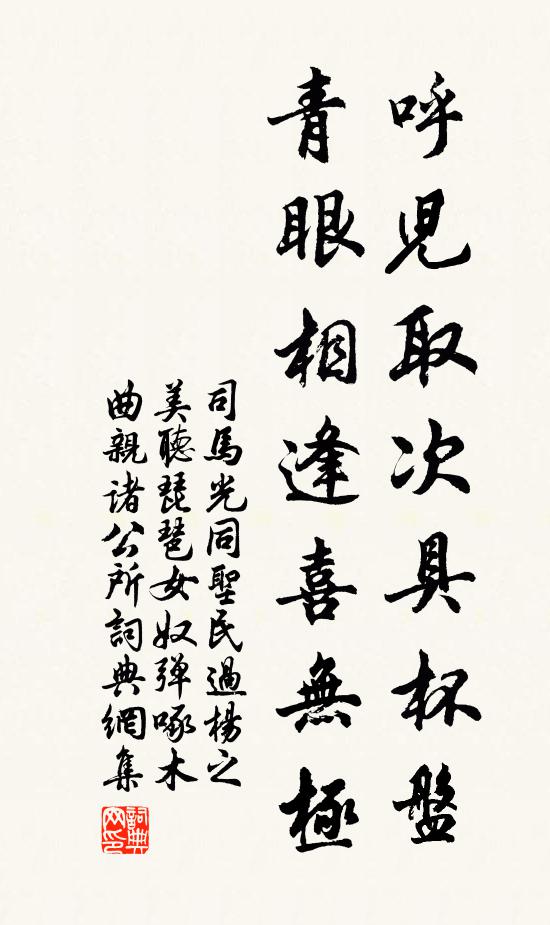 呼児取次具杯盤
青眼相逢喜無極
司馬光同聖民過楊之
美聽琵琶女奴弾啄木
曲親諸公所詞典網集
詞典
网印